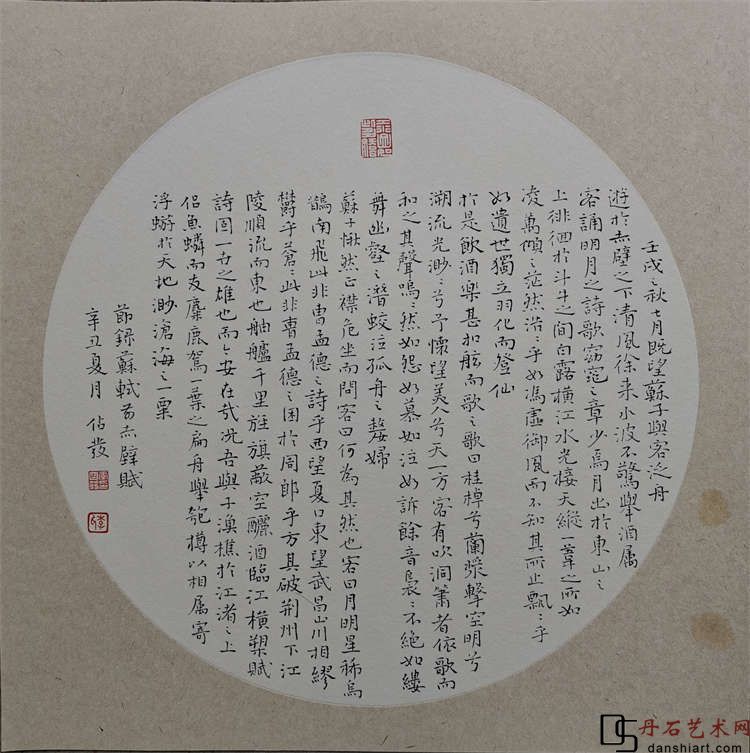 壬戌〻秋七月既望蘇子與客泛舟
遊於赤壁之下清風徐来水波不驚舉酒属
客誦明月之詩歌窈窕之章少焉月出於東山〻
上徘徊於斗牛之間白露横江水光接天縱一葦之所如
凌萬頃〻茫然浩〻乎如馮虚御風而不知其所止飄〻乎
如遺世獨立羽化而登仙
於是飲酒樂甚扣舷而歌〻歌曰桂棹兮蘭槳擊空明兮
溯流光渺〻兮予懷望美人兮天一方客有吹洞簫者依歌而
和之其聲嗚〻然如怨如慕如泣如訴餘音裊〻不絶如縷
舞幽壑〻潛蛟泣孤舟〻嫠婦
蘇子愀然正襟危坐而問客曰何為其然也客曰月明星稀烏
鵲南飛此非曹孟德〻詩乎西望夏口東望武昌山川相繆
鬱乎蒼〻此非曹孟德〻困於周郎乎方其破荆州下江
陵順流而東也舳艫千里旌旗蔽空釃酒臨江横槊賦
詩固一古之雄也而今安在哉況吾與子漁樵於江渚〻上
侣魚蝦而友麋鹿駕一葉之扁舟舉匏樽以相属寄
浮蝣於天地渺滄海〻一粟
節録蘇軾前赤壁賦
辛丑夏月佔發
李
丹石艺术网
danshiart.com